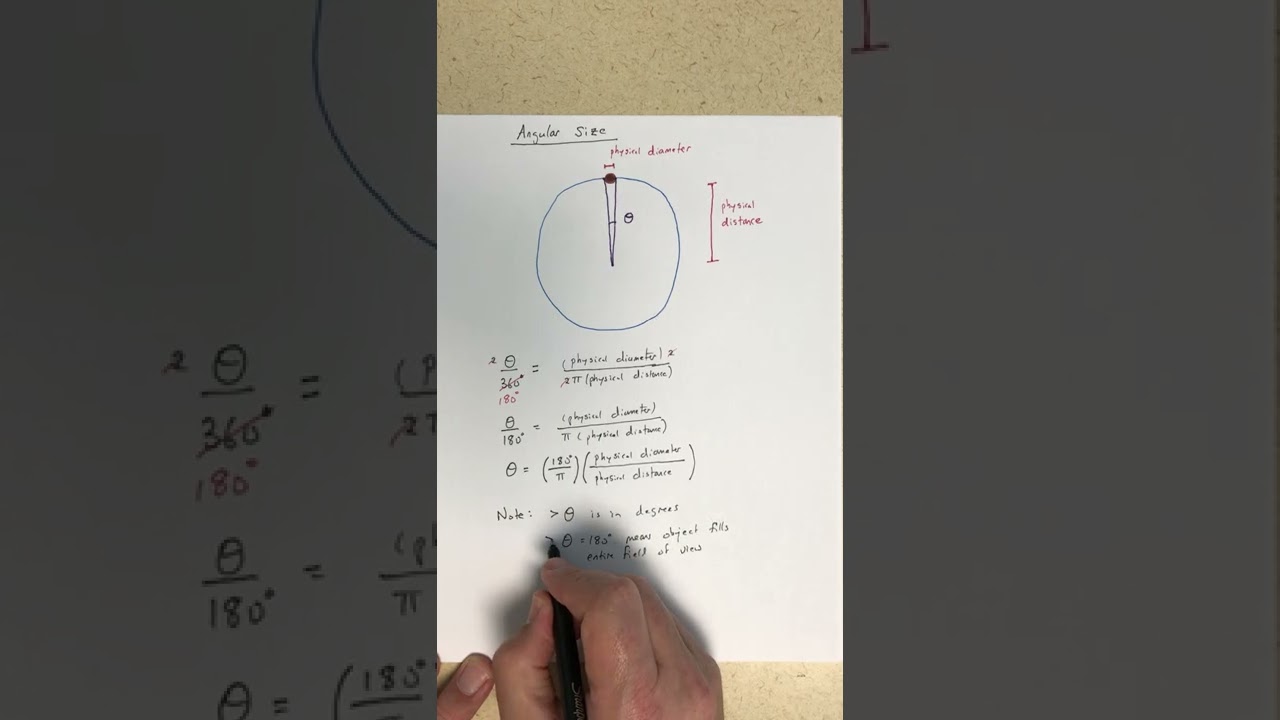 Angular Size
physical diameter
θ
physical
distance
2 θ / 360° 180° = (physical diameter) 2 / 2π (physical distance)
θ / 180° = (physical diameter) / π (physical distance)
θ = (180° / π) (physical diameter / physical distance)
Note: > θ is in degrees
> θ = 180° means object fills
entire field of view